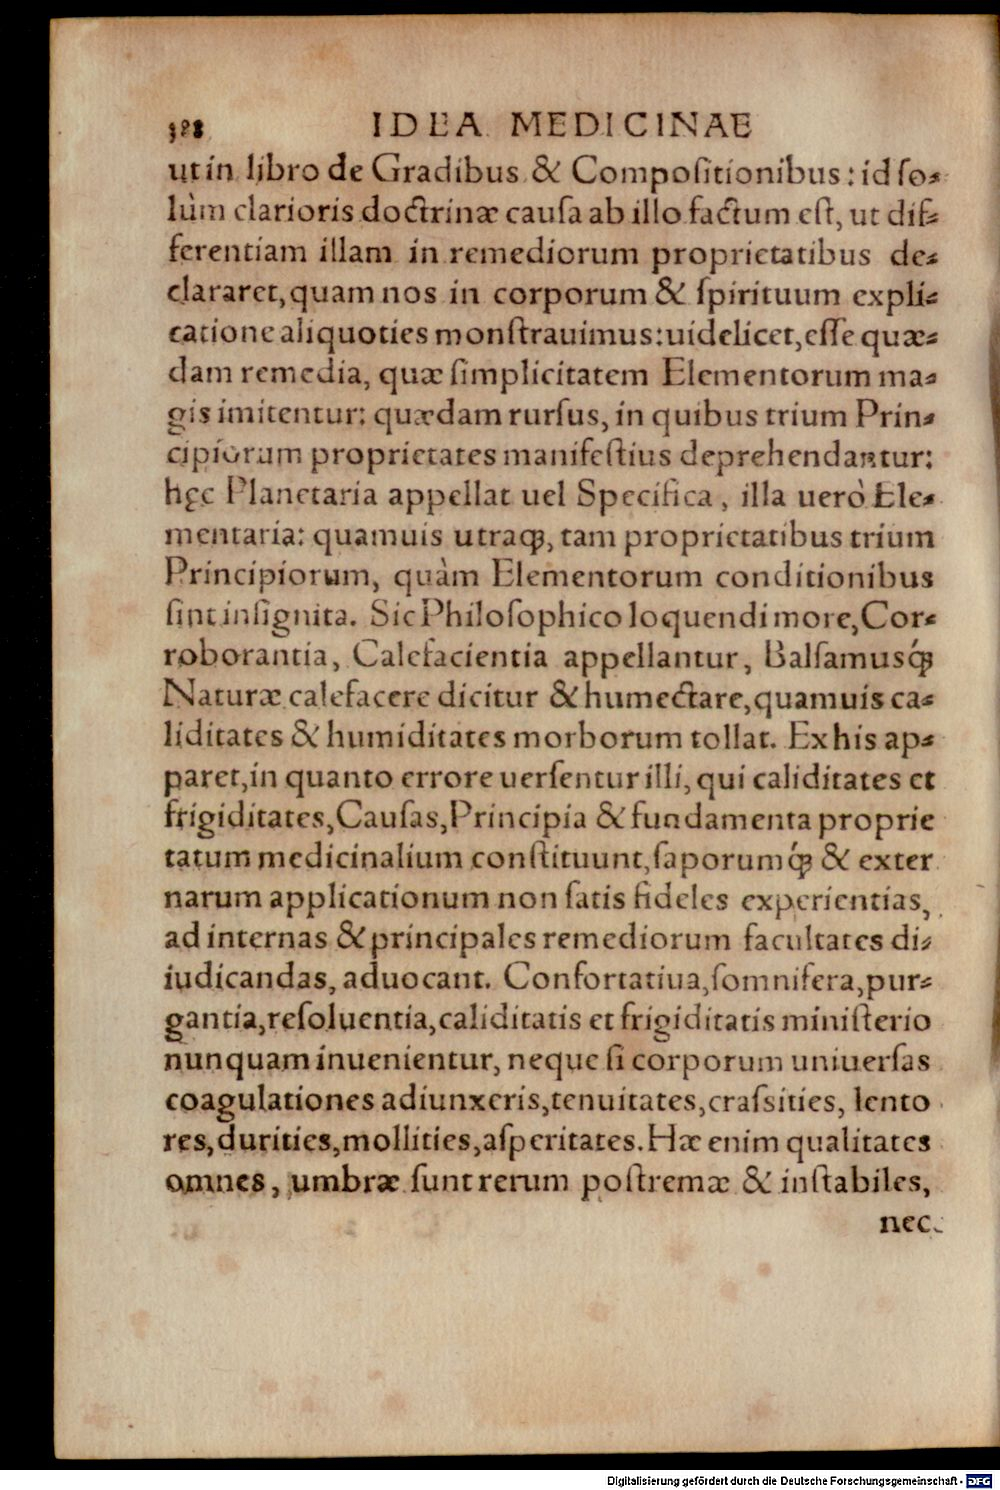 388 IDEA MEDICINAE
ut in libro de Gradibus & Compoſitionibus: id ſo-
lùm clarioris doctrinæ cauſa ab illo factum eſt, ut diſ-
ferentiam illam in remediorum proprietatibus de-
clararet, quam nos in corporum & ſpirituum expli-
catione aliquoties monſtrauimus: uidelicet, eſſe quæ-
dam remedia, quæ ſimplicitatem Elementorum ma-
gis imitentur: quædam rurſus, in quibus trium Prin-
cipiorum proprietates manifeſtius deprehendantur:
hęc Planetaria appellat uel Specifica, illa uerò Ele-
mentaria: quamuis utraqꝫ, tam proprietatibus trium
Principiorum, quàm Elementorum conditionibus
ſint inſignita. Sic Philoſophico loquendi more, Cor-
roborantia, Calefacientia appellantur, Balſamusqꝫ́
Naturæ calefacere dicitur & humectare, quamuis ca-
liditates & humiditates morborum tollat. Ex his ap-
paret, in quanto errore uerſentur illi, qui caliditates et
frigiditates, Cauſas, Principia & fundamenta proprie
tatum medicinalium conſtituunt, ſaporumqꝫ́ & exter
narum applicationum non ſatis fideles experientias,
ad internas & principales remediorum facultates di-
iudicandas, aduocant. Confortatiua, ſomnifera, pur-
gantia, reſoluentia, caliditatis et frigiditatis miniſterio
nunquam inuenientur, neque ſi corporum uniuerſas
coagulationes adiunxeris, tenuitates, craſsities, lento
res, durities, mollities, aſperitates. Hæ enim qualitates
omnes, umbræ ſunt rerum poſtremæ & inſtabiles,
nec
Digitalisierung gefördert durch die Deutsche Forschungsgemeinschaft - DFG